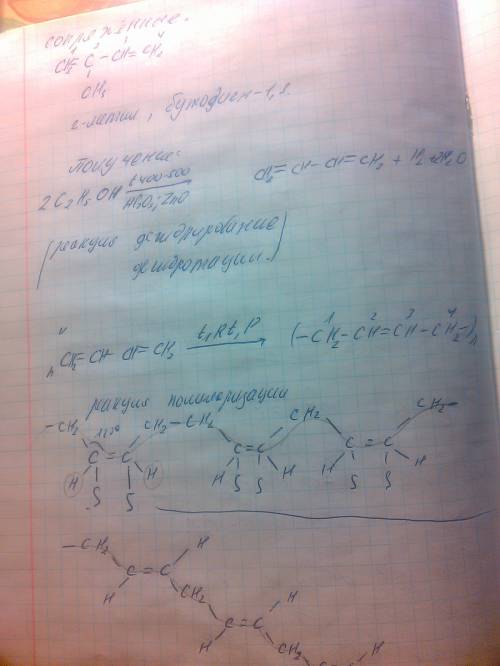 сопряжённые.
1 2 3 4
CH2=C–CH=CH2
CH3
2-метил, бутодиен-1,3
получение:
2C2H5OH t 400-500 Al2O3; ZnO → CH2=CH–CH=CH2 + H2 + 2H2O
(реакция дегидрирование
дегидротации.)
n CH2=CH CH=CH2 t, Kt, P → (–CH2–CH=CH–CH2–)n
1 2 3 4
реакция полимеризации
–CH2 CH2–CH2 CH2 CH2–
C=C C=C C=C
H H H H H H
S S S S S S
–CH2 H
C=C
H CH2 H
C=C
H CH2 H